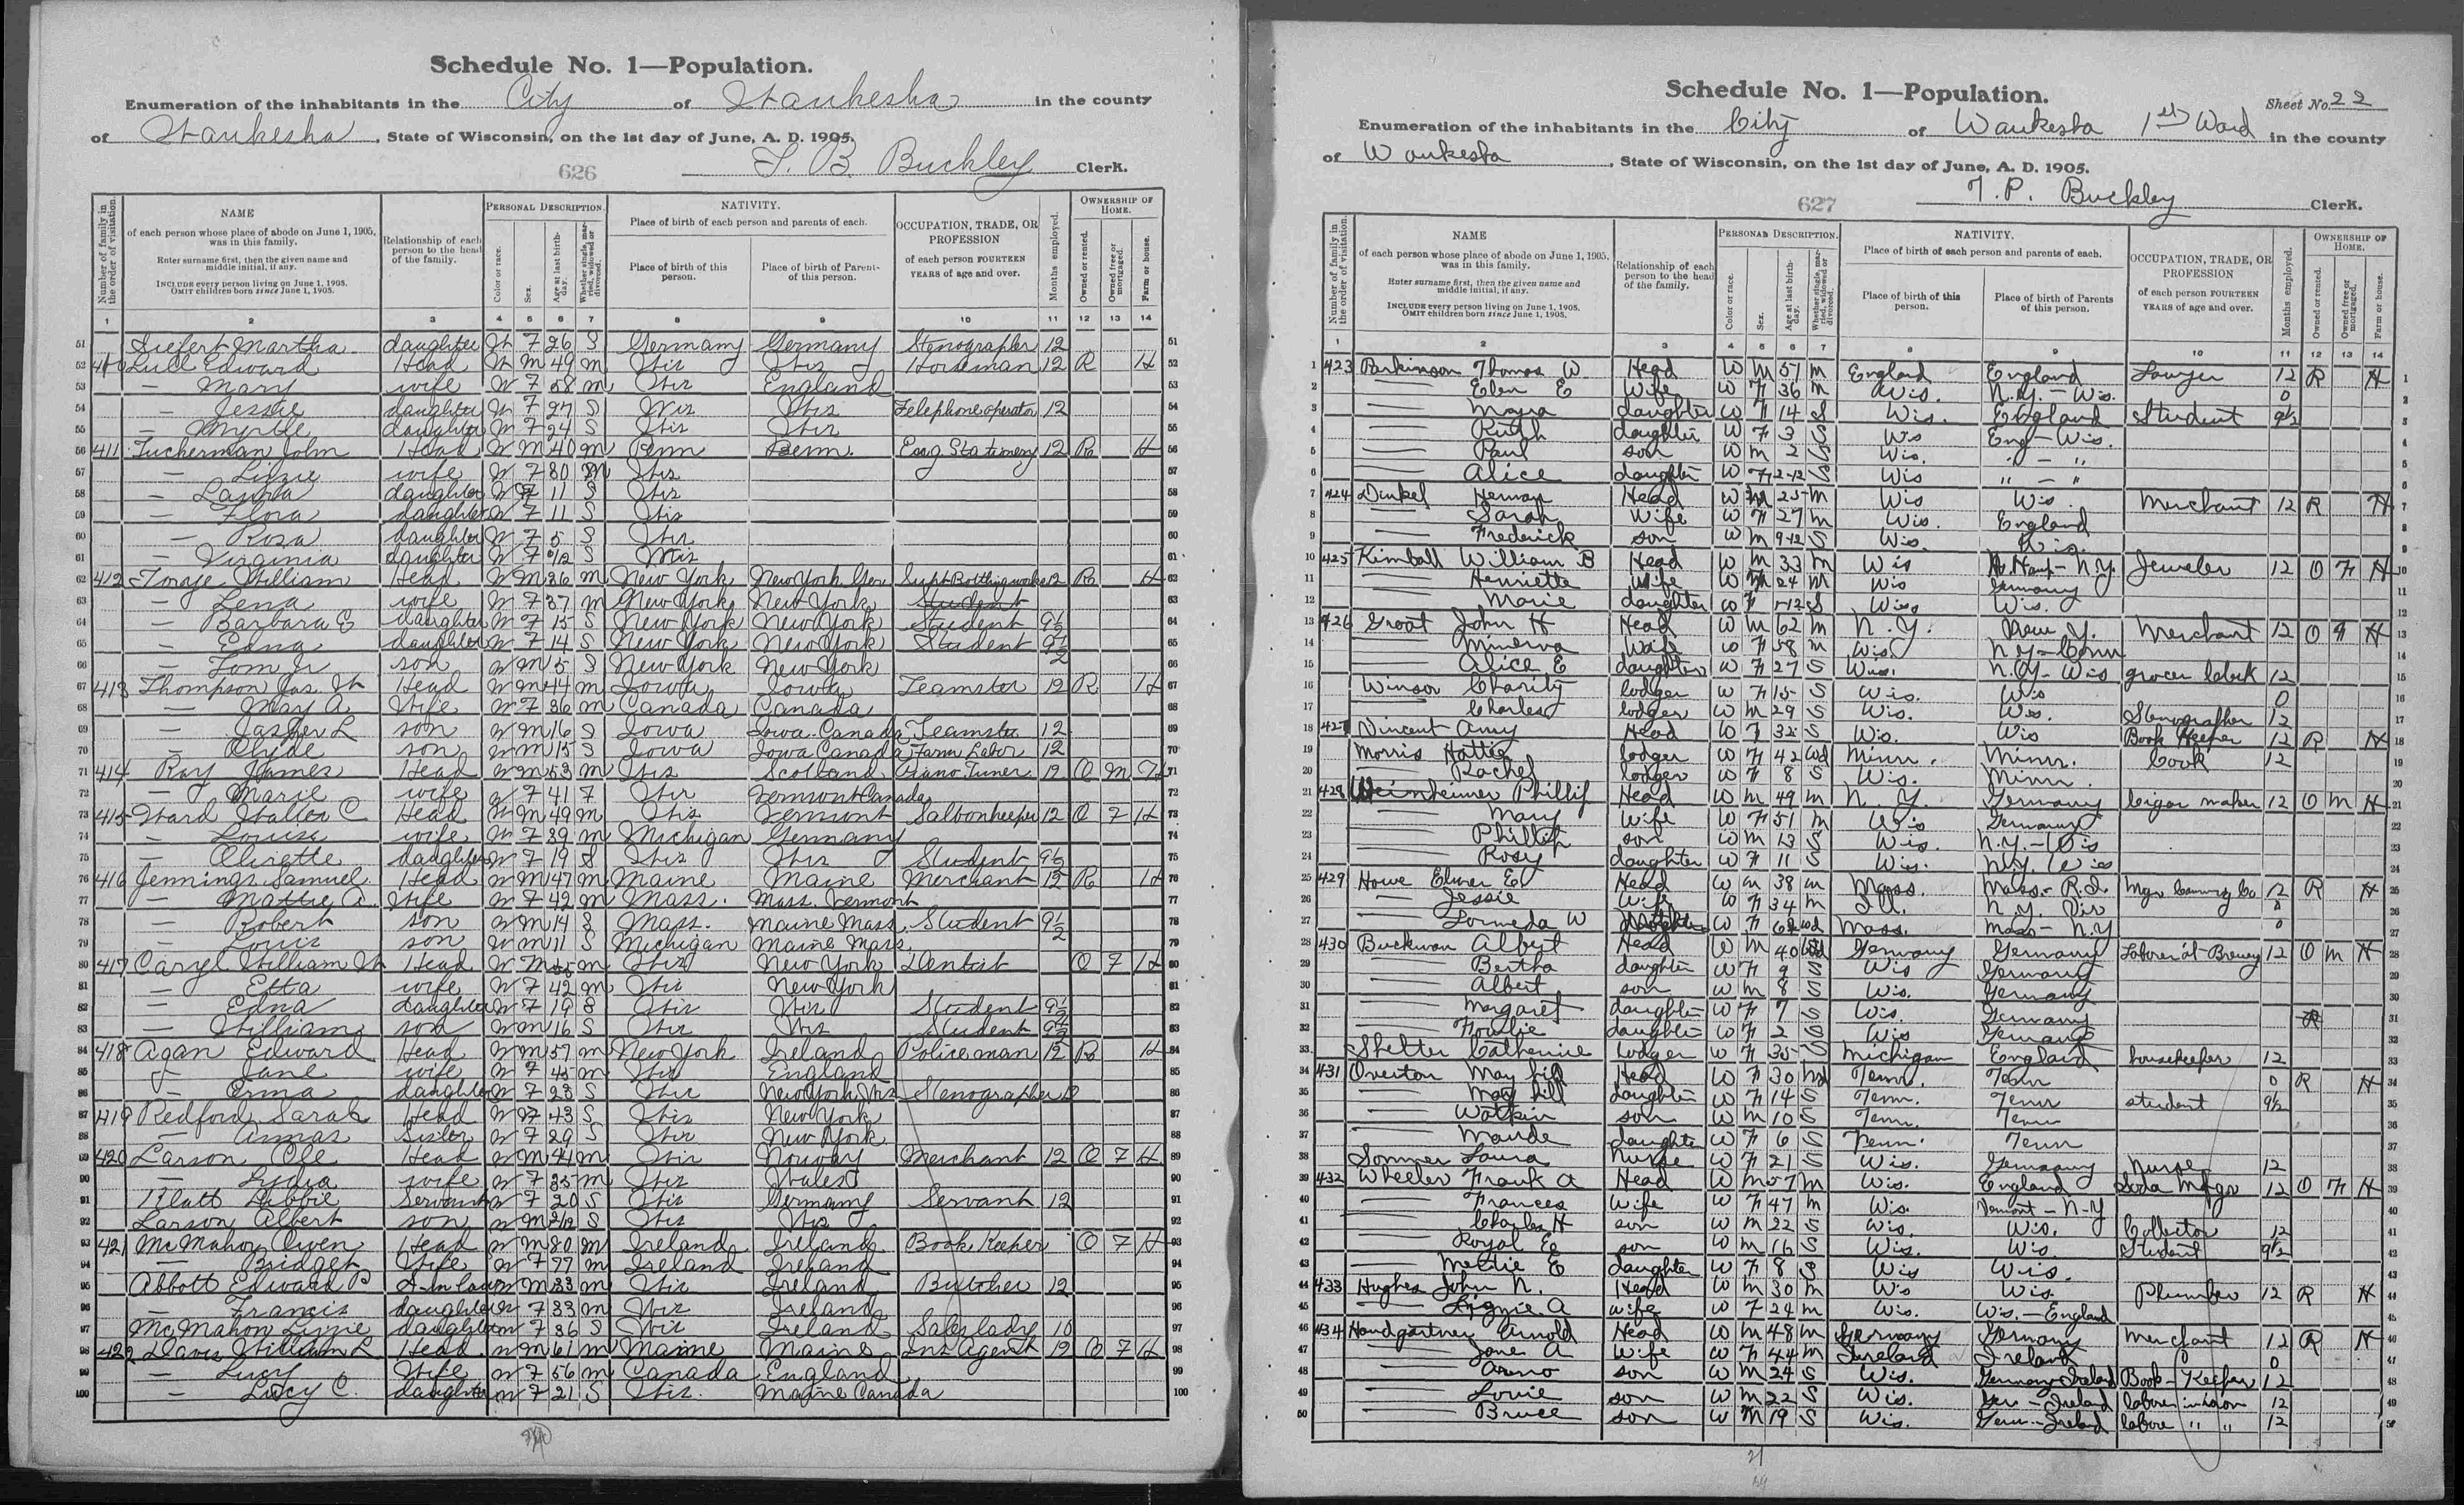 Schedule No. 1—Population.
Enumeration of the inhabitants in the City of Waukesha in the county
of Waukesha, State of Wisconsin, on the 1st day of June, A. D. 1905.
626 T. B. Buckley Clerk.
Number of family in the order of visitation.
NAME of each person whose place of abode on June 1, 1905, was in this family.
Enter surname first, then the given name and middle initial, if any.
INCLUDE every person living on June 1, 1905. OMIT children born since June 1, 1905.
Relationship of each person to the head of the family.
PERSONAL DESCRIPTION.
Color or race. Sex. Age at last birth-day. Whether single, mar-ried, widowed or divorced.
NATIVITY.
Place of birth of each person and parents of each.
Place of birth of this person. Place of birth of Parent- of this person.
OCCUPATION, TRADE, OR PROFESSION of each person FOURTEEN YEARS of age and over.
Months employed.
OWNERSHIP OF HOME.
Owned or rented. Owned free or mortgaged. Farm or house.
1 2 3 4 5 6 7 8 9 10 11 12 13 14
51 Siefert Martha daughter W F 26 S Germany Germany Stenographer 12 51
52 410 Lull Edward Head W M 49 M Wis Wis Horseman 12 R H 52
53 — Mary wife W F 58 M Wis England 53
54 — Jessie daughter W F 27 S Wis Wis Telephone operator 12 54
55 — Myrtle daughter W F 24 S Wis Wis 55
56 411 Tuckerman John Head W M 40 M Penn Penn. Eng Stationery 12 R H 56
57 — Lizzie wife W F 30 M Wis 57
58 — Laura daughter W F 11 S Wis 58
59 — Flora daughter W F 11 S Wis 59
60 — Rosa daughter W F 5 S Wis 60
61 — Virginia daughter W F S Wis 61
62 412 William Head W M 36 M New York New York Ger Supt Bottling works 12 R H 62
63 — Lena wife W F 37 M New York New York Student 63
64 — Barbara E daughter W F 15 S New York New York Student 9½ 64
65 — Edna daughter W F 14 S New York New York Student 9½ 65
66 — Tom Jr son W M 5 S New York New York 66
67 413 Thompson Jas. W Head W M 44 M Iowa Iowa Teamster 12 R H 67
68 — May A. Wife W F 36 M Canada Canada 68
69 — Jasper L son W M 16 S Iowa Iowa Canada Teamster 12 69
70 — Clyde son W M 15 S Iowa Iowa Canada Farm Labor 12 70
71 414 Ray James Head W M 53 M Wis Scotland Piano Tuner 12 O M H 71
72 — Marie wife W F 41 F Wis Vermont Canada 72
73 415 Ward Walter C Head W M 49 M Wis Vermont Saloonkeeper 12 O F H 73
74 — Louise wife W F 39 M Michigan Germany 74
75 — Olivette daughter W F 19 S Wis Wis Student 9½ 75
76 416 Jennings Samuel Head W M 47 M Maine Maine Merchant 12 R H 76
77 — Mattie A. Wife W F 42 M Mass. Mass. Vermont 77
78 — Robert son W M 14 S Mass. Maine Mass. Student 9½ 78
79 — Louis son W M 11 S Michigan Maine Mass. 79
80 417 Caryl William W Head W M 45 M Wis New York Dentist O F H 80
81 — Etta wife W F 42 M Wis New York 81
82 — Edna daughter W F 19 S Wis Wis Student 9½ 82
83 — William son W M 16 S Wis Wis Student 9½ 83
84 418 Agan Edward Head W M 57 M New York Ireland Police man 12 R H 84
85 — Jane wife W F 45 M Wis England 85
86 — Erma daughter W F 23 S Wis New York Wis Stenographer 12 86
87 419 Redford Sarah Head W F 43 S Wis New York 87
88 — Annas Sister W F 29 S Wis New York 88
89 420 Larson Ole Head W M 41 M Wis Norway Merchant 12 O F H 89
90 — Lydia wife W F 35 M Wis Wales 90
91 Blatt Libbie Servant W F 20 S Wis Germany Servant 12 91
92 Larson Albert son W M 2/12 S Wis Wis 92
93 421 McMahon Owen Head W M 80 M Ireland Ireland Book Keeper O F H 93
94 — Bridget Wife W F 77 M Ireland Ireland 94
95 Abbott Edward B S-in law W M 33 M Wis Ireland Butcher 12 95
96 — Francis daughter W F 33 M Wis Ireland 96
97 McMahon Lizzie daughter W F 36 S Wis Ireland Saleslady 10 97
98 422 Davis William L Head W M 61 M Maine Maine Ins Agent 12 O F H 98
99 — Lucy Wife W F 56 M Canada England 99
100 — Lucy C. daughter W F 21 S Wis. Maine Canada 100
Schedule No. 1—Population.
Sheet No. 22
Enumeration of the inhabitants in the City of Waukesha 1st Ward in the county
of Waukesha, State of Wisconsin, on the 1st day of June, A. D. 1905.
627 T. P. Buckley Clerk.
Number of family in the order of visitation.
NAME of each person whose place of abode on June 1, 1905, was in this family.
Enter surname first, then the given name and middle initial, if any.
INCLUDE every person living on June 1, 1905. OMIT children born since June 1, 1905.
Relationship of each person to the head of the family.
PERSONAL DESCRIPTION.
Color or race. Sex. Age at last birth-day. Whether single, mar-ried, widowed or divorced.
NATIVITY.
Place of birth of each person and parents of each.
Place of birth of this person. Place of birth of Parents of this person.
OCCUPATION, TRADE, OR PROFESSION of each person FOURTEEN YEARS of age and over.
Months employed.
OWNERSHIP OF HOME.
Owned or rented. Owned free or mortgaged. Farm or house.
1 2 3 4 5 6 7 8 9 10 11 12 13 14
1 423 Parkinson Thomas W Head W M 57 M England England Lawyer 12 R H 1
2 — Elen E Wife W F 36 M Wis. N.Y. - Wis. 0 2
3 — Myra daughter W F 14 S Wis. England Student 9½ 3
4 — Ruth daughter W F 3 S Wis Eng - Wis. 4
5 — Paul son W M 2 S Wis. " - " 5
6 — Alice daughter W F 2-12 S Wis " - " 6
7 424 Dinkel Herman Head W M 25 M Wis Wis Merchant 12 R H 7
8 — Sarah Wife W F 27 M Wis. England 8
9 — Frederick son W M 9-12 S Wis. Wis. 9
10 425 Kimball William B Head W M 33 M Wis N. Hamp - N.Y. Jeweler 12 O F H 10
11 — Henriette Wife W F 24 M Wis Germany 11
12 — Marie daughter W F 1-12 S Wis Wis. 12
13 426 Groat John H Head W M 62 M N.Y. New Y. Merchant 12 O F H 13
14 — Minerva Wife W F 58 M Wis. N.Y - Conn 14
15 — Alice E daughter W F 27 S Wis. N.Y. - Wis grocer clerk 12 15
16 Winsor Charity lodger W F 15 S Wis. Wis 0 16
17 — Charles lodger W M 29 S Wis. Wis. Stenographer 12 17
18 427 Vincent Amy Head W F 32 S Wis. Wis Book Keeper 12 R H 18
19 Morris Hattie lodger W F 42 Wd Minn. Minn. Cook 12 19
20 — Rachel lodger W F 8 S Wis. Minn. 20
21 428 Weinheimer Phillip Head W M 49 M N.Y. Germany Cigar maker 12 O M H 21
22 — Mary Wife W F 51 M Wis Germany 22
23 — Phillip son W M 13 S Wis. N.Y. - Wis 23
24 — Rosy daughter W F 11 S Wis. N.Y. Wis 24
25 429 Howe Elmer E Head W M 38 M Mass. Mass - R.I. Mgr Canning Co 12 R H 25
26 — Jessie Wife W F 34 M Ill. N.Y. Wis 0 26
27 — W W F 62 Wd Mass. Mass - N.Y 0 27
28 430 Buckman Albert Head W M 40 Wd Germany Germany Laborer at Brewery 12 O M H 28
29 — Bertha daughter W F 9 S Wis Germany 29
30 — Albert son W M 8 S Wis. Germany 30
31 — Margaret daughter W F 7 S Wis. Germany R 31
32 — daughter W F 2 S Wis Germany 32
33 Shelter Catherine Lodger W F 35 S Michigan England housekeeper 12 33
34 431 Overton May Hill Head W F 30 Wd Tenn. Tenn 0 R H 34
35 — May Hill daughter W F 14 S Tenn. Tenn student 9½ 35
36 — Watkin son W M 10 S Tenn. Tenn 36
37 — Maude daughter W F 6 S Tenn. Tenn 37
38 Sommer Laura Nurse W F 21 S Wis. Germany Nurse 12 38
39 432 Wheeler Frank A Head W M 57 M Wis. England Soda Mfgr 12 O F H 39
40 — Frances Wife W F 47 M Wis. Vermont - N-Y 40
41 — Charles H son W M 22 S Wis. Wis. Collector 12 41
42 — Royal E son W M 16 S Wis. Wis. Student 9½ 42
43 — Mettie E daughter W F 8 S Wis Wis. 43
44 433 Hughes John N. Head W M 30 M Wis Wis. Plumber 12 R H 44
45 — Lizzie A wife W F 24 M Wis. Wis. - England 45
46 434 Handgartner Arnold Head W M 48 M Germany Germany Merchant 12 R H 46
47 — Jane A Wife W F 44 M Ireland Ireland 0 47
48 — Arno son W M 24 S Wis. Germany Ireland Book-Keeper 12 48
49 — Louie son W M 22 S Wis. Ger - Ireland laborer 12 49
50 — Bruce son W M 19 S Wis. Germ - Ireland labore " " 12 50
21